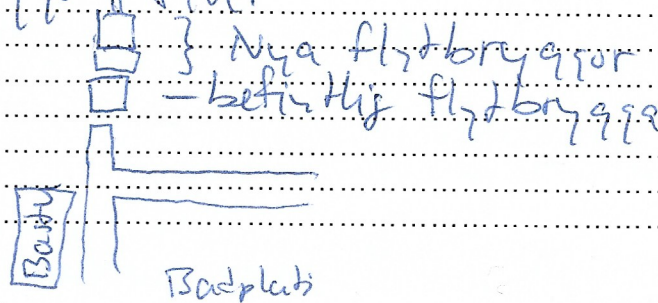 } Nya flytbryggor
- befintlig flytbrygga
Bastu
Badplats